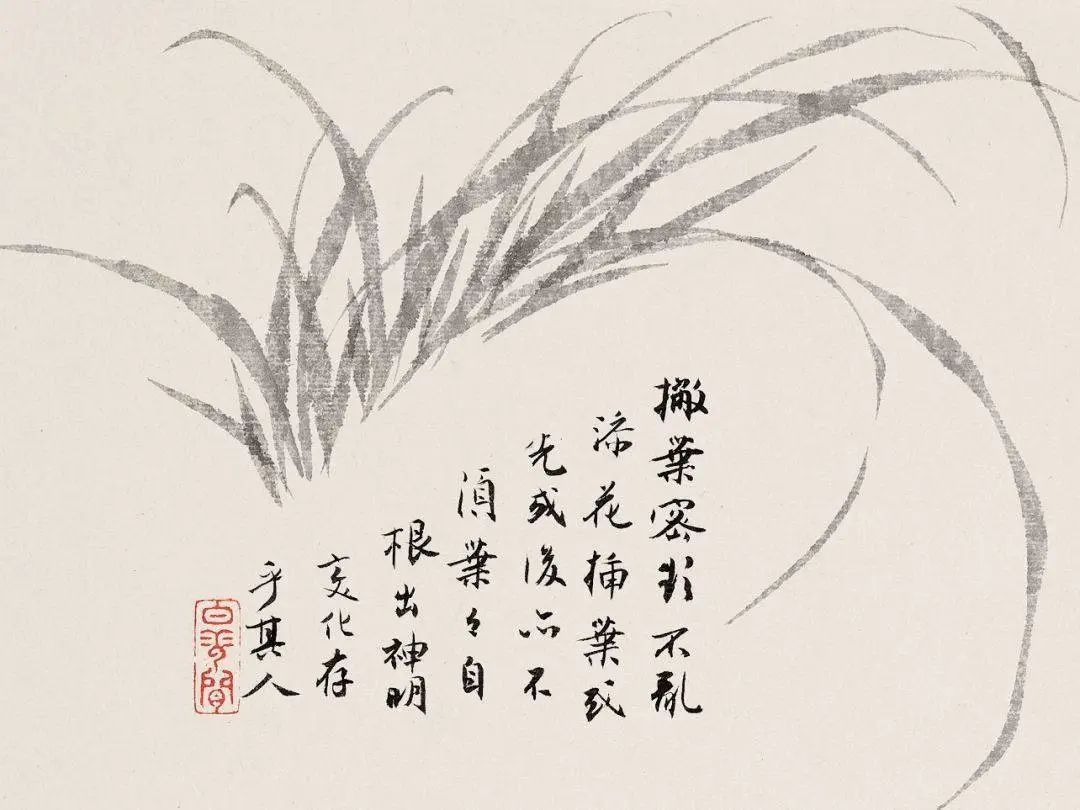 撇葉密不亂
添花插葉或
先或後亦不
須葉々自
根出神明
变化存
乎其人